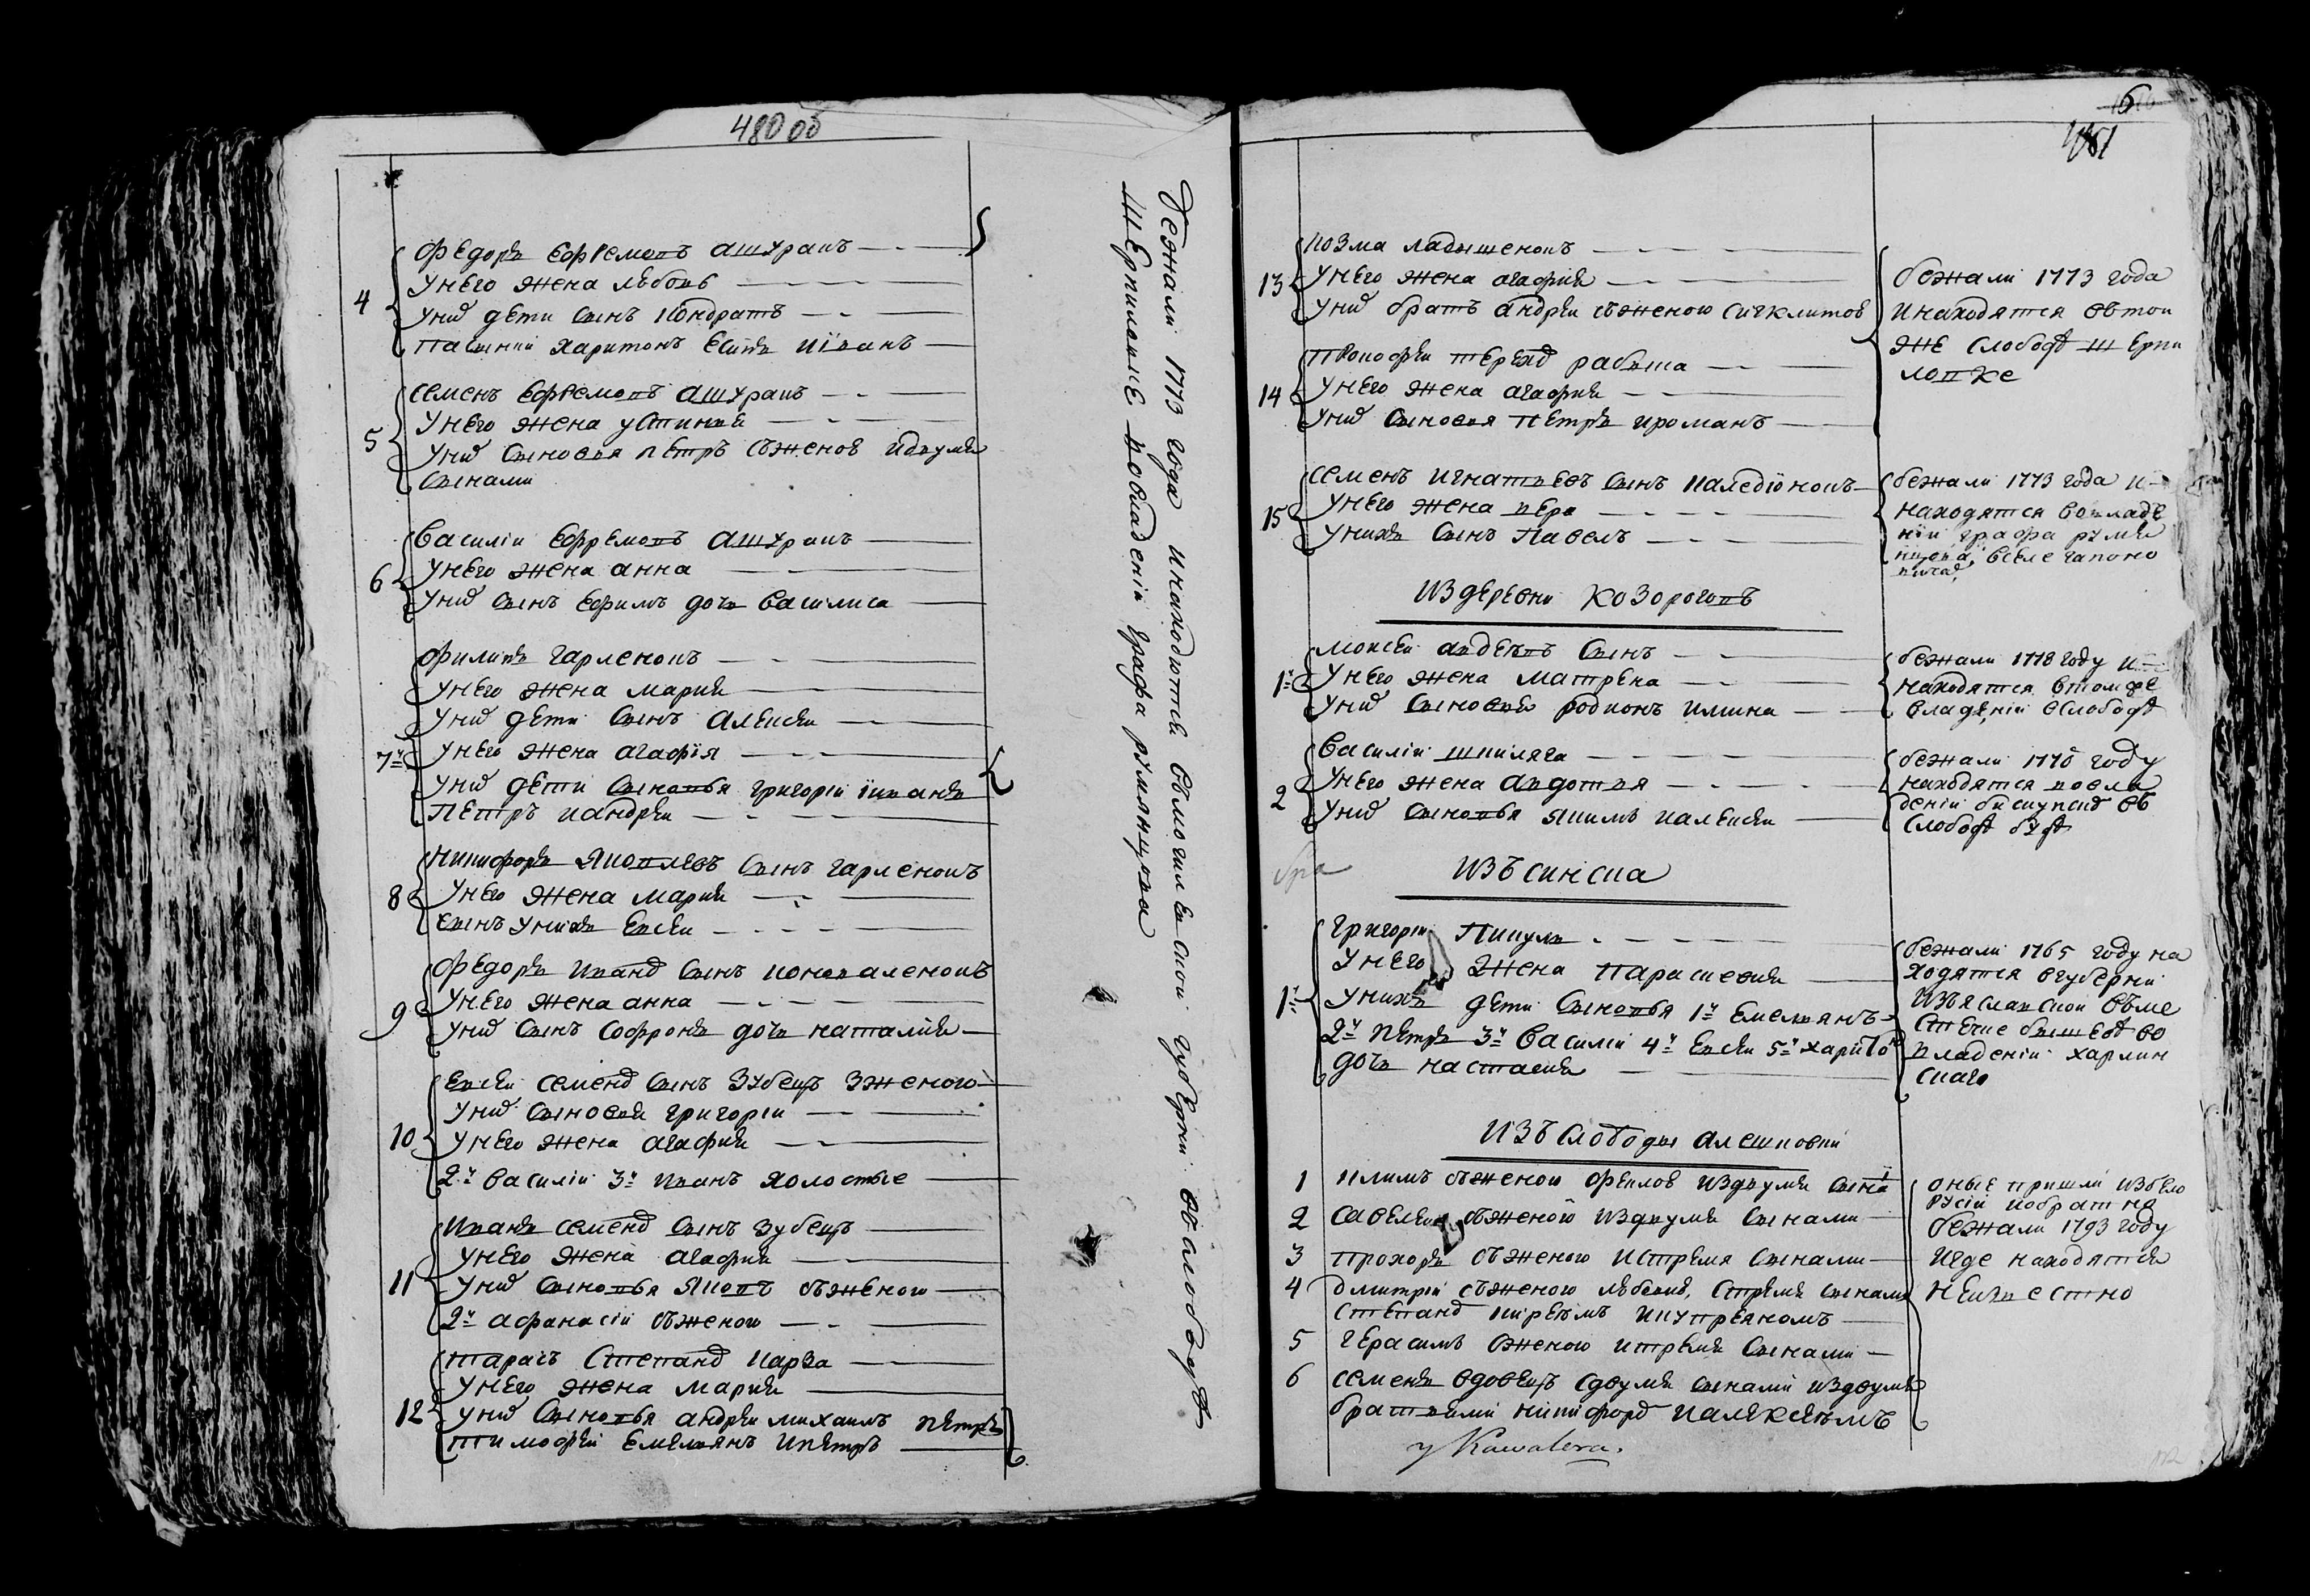 480 об
4
Федоръ Ефремовъ Ашураковъ
Унего жена Любовь
Уних дети сынъ Кондратъ
Пасынки Харитонъ Есипъ Иїванъ
5
Семенъ Ефремовъ Ашураковъ
Унего жена Устинья
Уних сыновья Петръ съженою идвумя
сынами
6
Василіи Ефремовъ Ашураковъ
Унего жена анна
Уних сынъ Ефимъ дочь василиса
7й
Филипъ Гарленокъ
Унего жена Мария
Уних дети сынъ Алексеи
Унего жена агафїя
Уних дети сыновья григории їиванъ
Петръ иандреи
8
Никифоръ Яковлевъ сынъ гарленокъ
Унего жена Мария
Сынъ унихъ Евсеи
9
Федоръ Иванов сынъ Коноваленокъ
Унего жена анна
Уних сынъ Софронъ дочь наталия
10
Евсеи Семенов сынъ Зубецъ зженою
Уних сыновья григории
Унего жена агафия
2й василіи 3й Иванъ холостые
11
Иванъ семенов сынъ зубецъ
Унего жена агафия
Уних сыновья Яковъ съженою
2й афанасіи съженою
12
Тарасъ Степанов
Унего жена Мария
Уних сыновья андреи михаилъ петръ
Тимофеи Емельянъ ипетръ
бежали 1773 года инаходятся вмогилевскои губернии въслободе
Шерпиловке вовладеніи графа румянцова
6
481
13
козма ладышенокъ
Унего жена агафия
Уних братъ андреи съженою
бежали 1773 года
инаходятся втои
же слободе шерпи
ловке
14
Прокофеи
Унего жена агафия
Уних сыновья Петръ ироманъ
15
Семенъ Игнатьевъ сынъ
Унего жена вера
Унихъ сынъ Павелъ
бежали 1773 года и
находятся вовладе
ніи графа румян
цова, вселе
Издеревни Козороговъ
1й
Моисеи авдеевъ сынъ
Унего жена матрена
Уних сыновья родионъ имина
бежали 1778 году и
находятся втомже
владеніи вслободе
2
Василіи шпиляга
Унего жена авдотья
Уних сыновья якимъ иалексеи
бежали 1770 году
находятся вовла
деніи бискупских въ
слободе
Изъ синска
1й
Григории Пикула
Унего жена парасковия
Унихъ дети сыновья 1й Емельянъ
2й петръ 3й василіи 4й Евсеи 5й харито
дочь настасия
бежали 1765 году на
ходятся вгуберніи
Изъяславскои въме
стечке во
владеніи харлин
скаго
Изъ слободы алешковки
1
Климъ съженою издвумя сына
2
Савелеи съженою издвумя сынами
3
Прохоръ съженою истремя сынами
4
Дмитріи съженою любовию, стремя сынами
Степаном
5
Герасимъ зженою итремя сынами
6
Семенъ вдовецъ сдвумя сынами издвумя
братьями никифоромъ иалексеемъ
оные пришли избело
русіи иобратно
бежали 1793 году
игде находятся
неизвестно
у Kawalera.